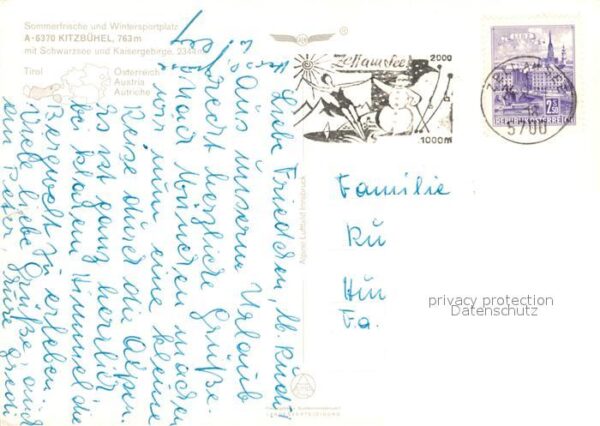 Sommerfrische und Wintersportplatz
A-6370 KITZBÜHEL, 763 m
mit Schwarzsee und Kaisergebirge, 2344 m
Tirol
Österreich
Austria
Autriche
Zell am See
2000
1000m
5700
2.50
REPUBLIK ÖSTERREICH
Alpine Luftbild Innsbruck
Liebe Friedchen, lb. Rudi
Aus unserm Urlaub
herzliche Grüße.
Von München machen
wir nun eine kleine
Reise durch die Alpen.
Es ist ganz herrlich
bei klarem Himmel die
Bergwelt zu erleben.
Viele liebe Grüße, auch
Familie
Ru
Hin
Fa.
privacy protection
Datenschutz